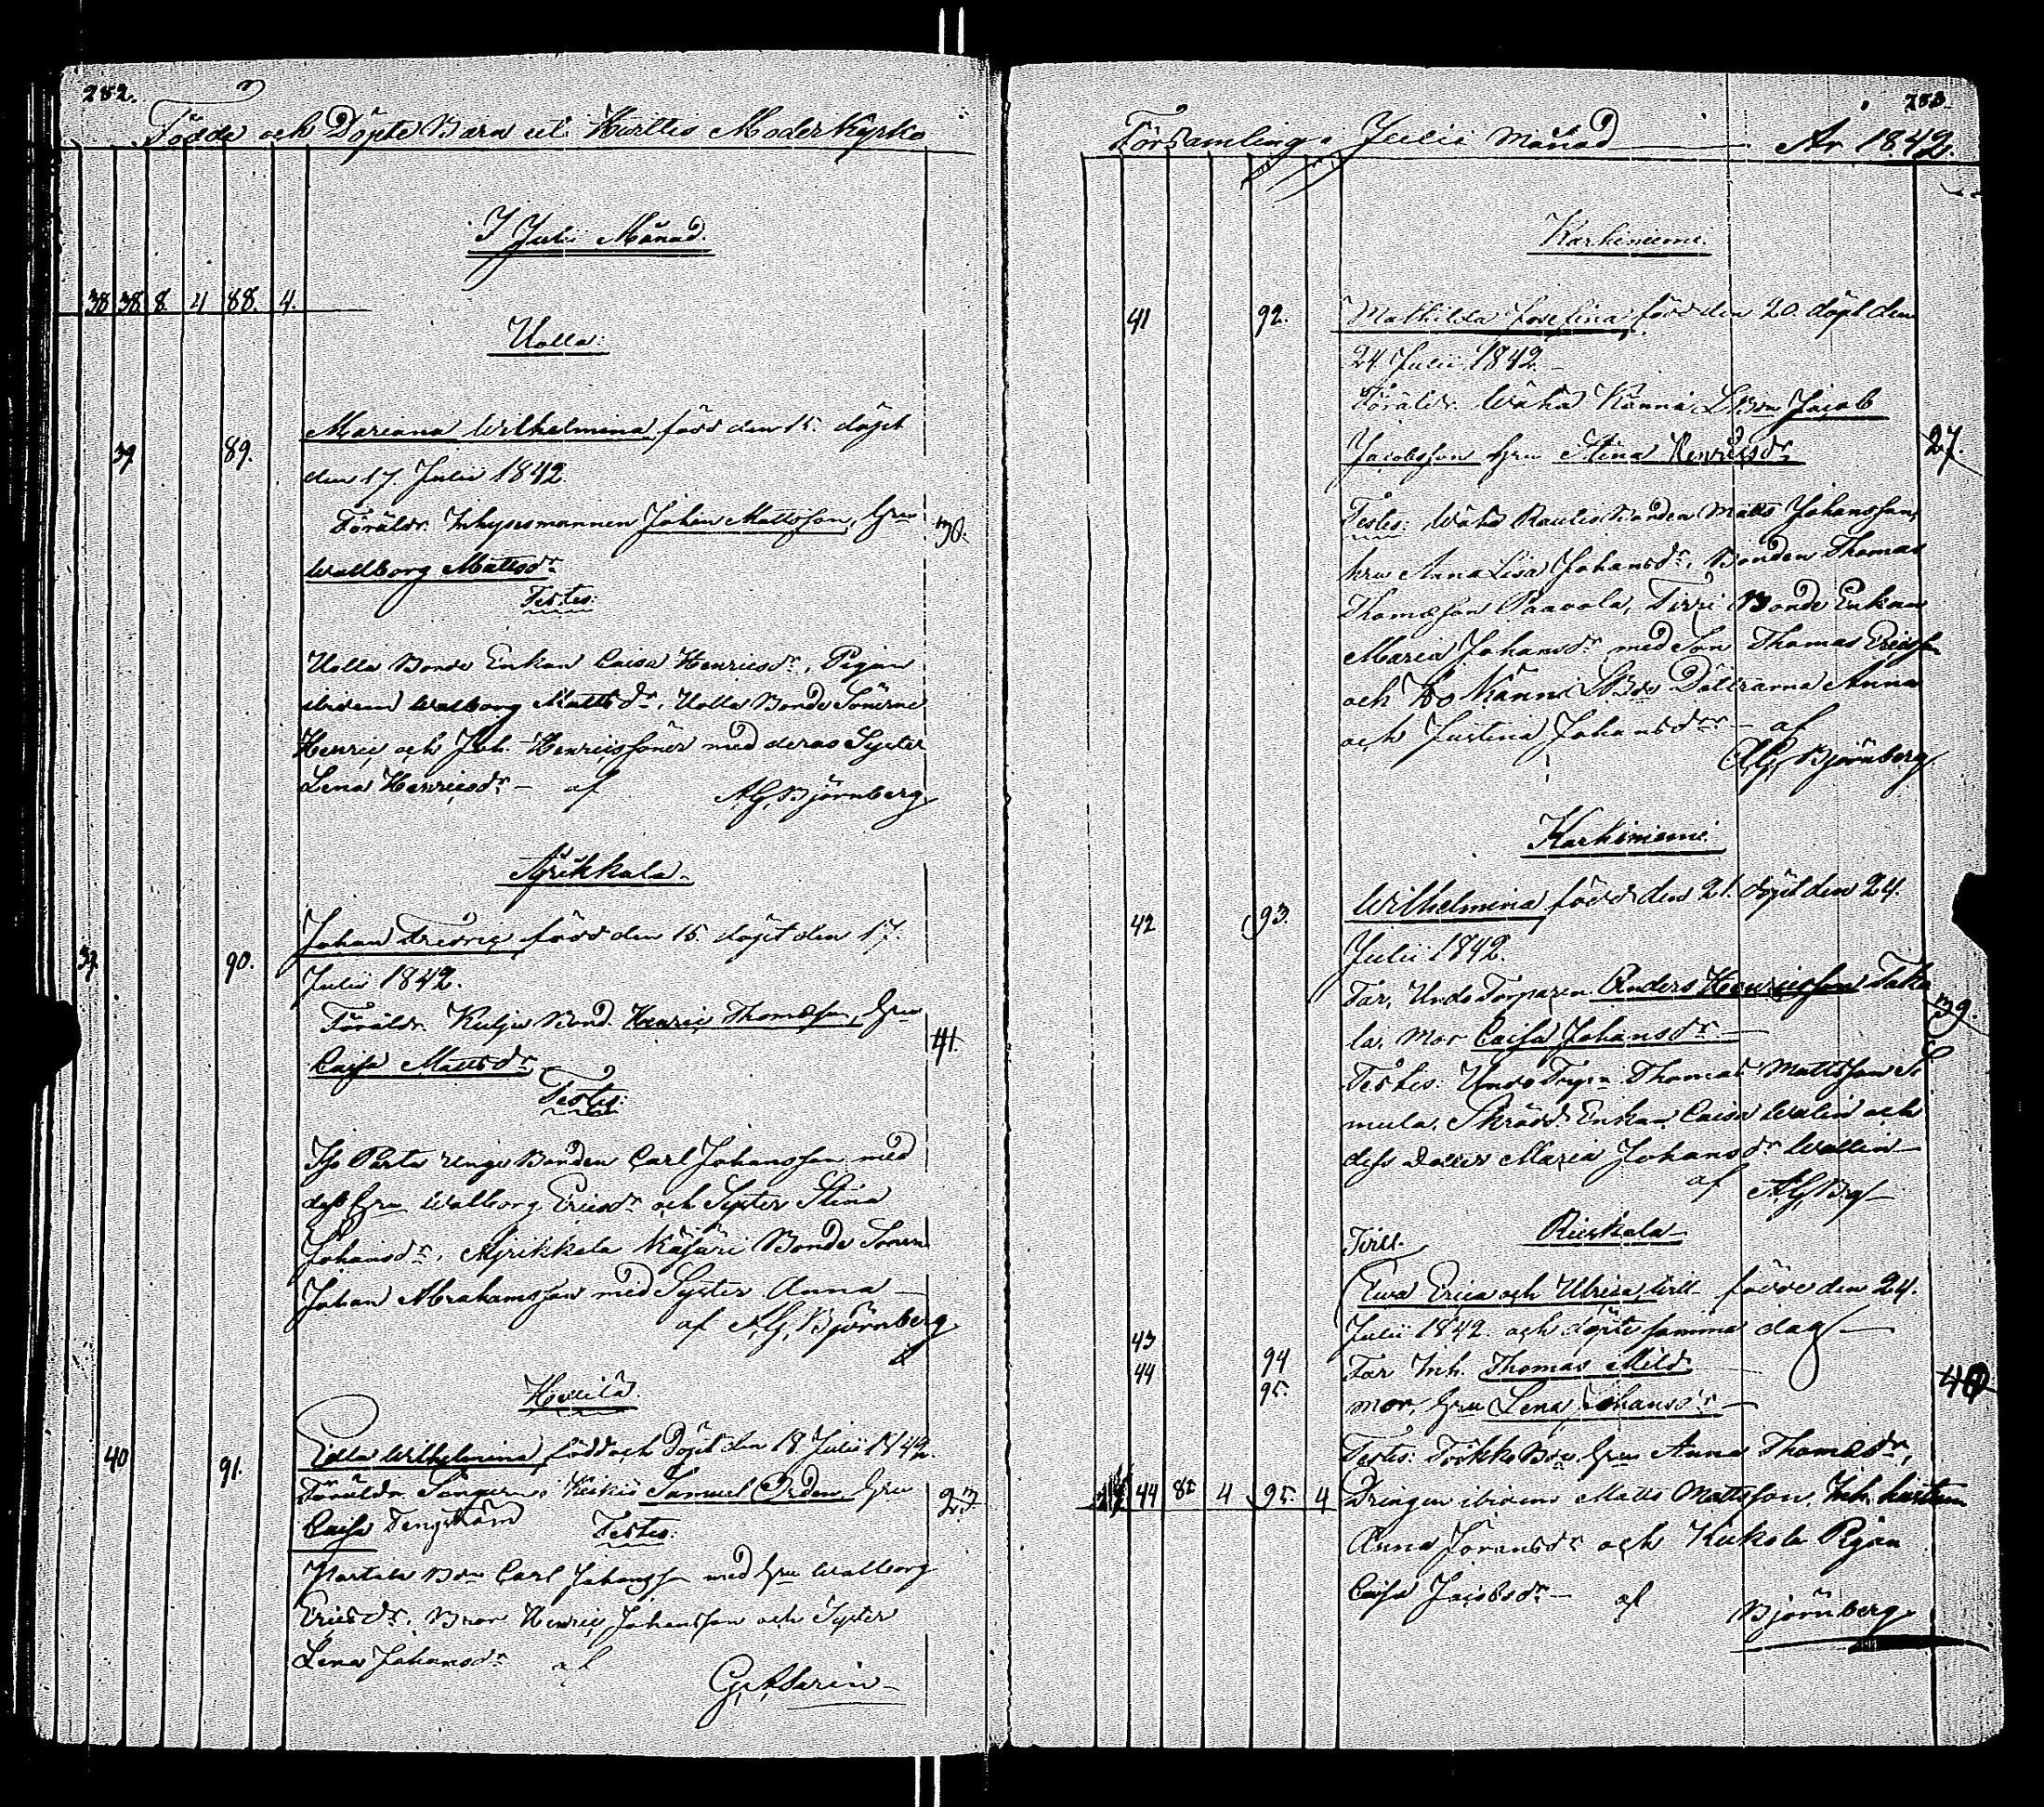 282.
Födde och Döpte Barn uti Huittis Moder Kyrko
I Julii Månad.
38 38 8. 4 88. 4.
Uolla:
39 89. Mariana Wilhelmina född den 15. döpt
den 17. Julii 1842.
Föräldr. Inhysesmannen Johan Mattsson, hru 30.
Wallborg Mattsdr
Testes:
Uolla Bonde Enkan Caisa Henricsdr, Pigan
ibidem Walborg Mattsdr, Uolla Bonde Sönerne
Henric och Joh. Henricssöner med deras Syster
Lena Henricsdr – af AG Björnberg
39. 90. Johan Fredric född den 15. döpt den 17.
Julii 1842.
Föräldr. Bond. Henric Thomasson, hru 41.
Caisa Mattsdr
Testes:
Iso Perta unge Bonden Carl Johansson med
dess hru Walborg Ericsdr och Syster Stina
Johansdr, Bonde Sonen
Johan Abrahamsson med Syster Anna –
af AG Björnberg
40 91. Edla Wilhelmina född och döpt den 18 Julii 1842.
Föräldr Samuel Orden hru 23
Caisa Tengström Testes:
Bon Carl Johansson med hru Walborg
Ericsdr, Bror Henric Johansson och Syster
Lena Johansdr af
283.
Församling. Julii Månad År 1842.
Karhiniemi.
41 92. Mathilda Josefina född den 20. döpt den
24 Julii 1842. –
Föräldr. Wähä Känni LBon Jacob
Jacobsson hru Stina Henricsdr 27.
Testes: Wähä Rautis Bonden Matts Johansson,
hru Anna Lisa Johansdr, Bonden Thomas
Thomasson Paavola, Bonde Enkan
Maria Johansdr med Son Thomas Ericsson
och Iso Känni LBos Döttrarna Anna
och Justina Johansdr – af
AG Björnberg
Karhiniemi.
42 93. Wilhelmina född den 21. döpt den 24.
Julii 1842.
Far, Unds Torparen Anders Henricsson Takka 39.
la, Mor Caisa Johansdr –
Testes: Unds Torpn Thomas Mattsson
mula, Skrädd. Enkan Caisa Walin och
dess Dotter Maria Johansdr Wallin –
af AGBg
Tvill. Rieskala
Ewa Erica och Ulrica, tvill. födde den 24.
43 Julii 1842. och döpte samma dag –
44 94 Far Inh. Thomas Mild 40
95. mor, hru Lena Johansdr –
Testes: Bon hru Anna Thomasdr,
44 8. 4 95. 4 Drängen ibidem Matts Mattsson, Inh. hustrun
Anna Göransdr och Pigan
Caisa Jacobsdr – af Björnberg